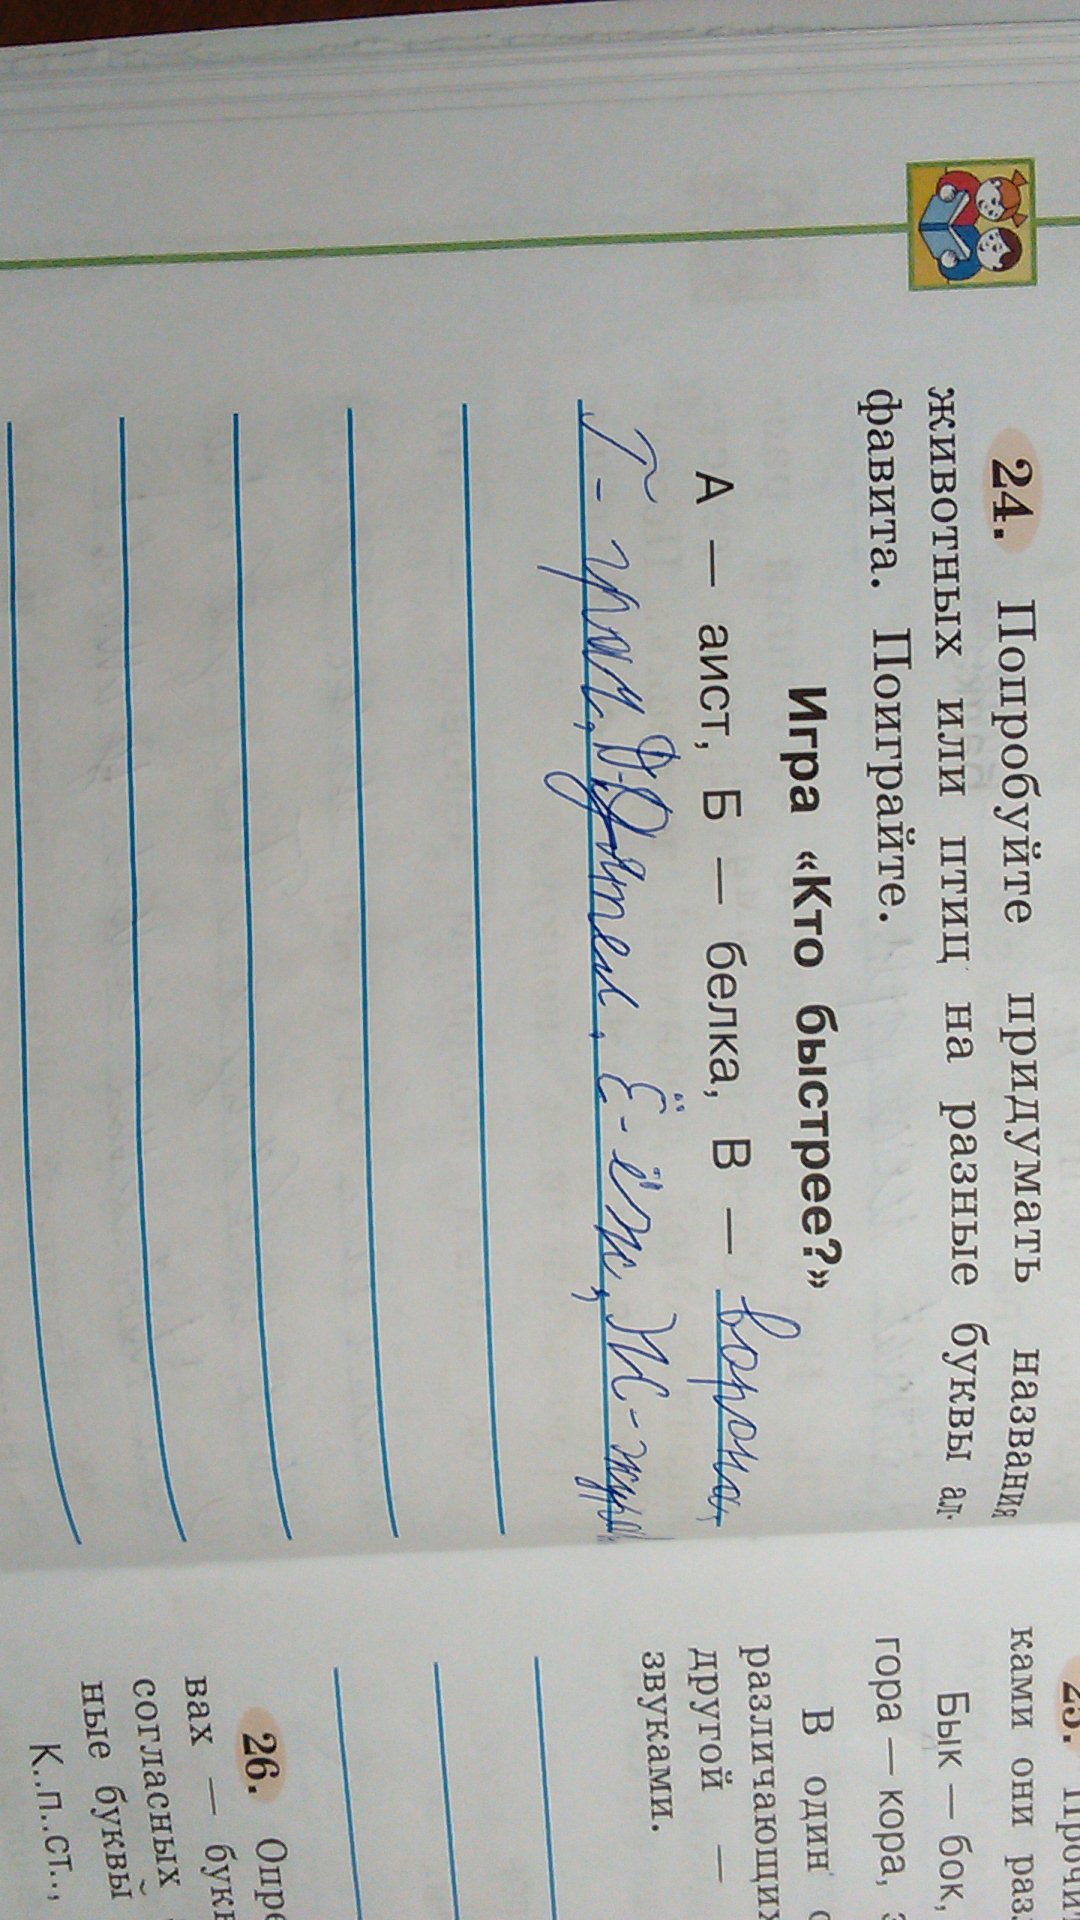 24. Попробуйте придумать названия
животных или птиц на разные буквы ал-
фавита. Поиграйте.
Игра «Кто быстрее?»
А — аист, Б — белка, В — ворона,
Г - грач, Д - Дятел, Ё - ёж, Ж -
ками они
Бык — бок,
гора — кора,
В один
различающих
другой —
звуками.
26.
вах —
согласных
ные буквы
К..п..ст..,